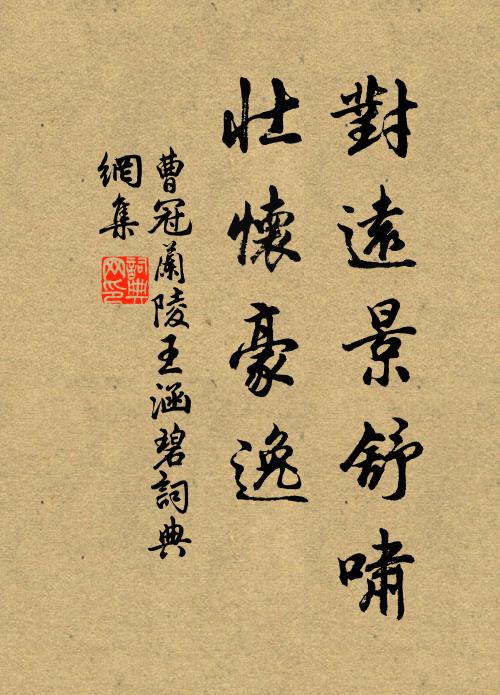 對遠景舒嘯
壯懷豪逸
曹冠蘭陵王涵碧詞典
網集
詞典網印